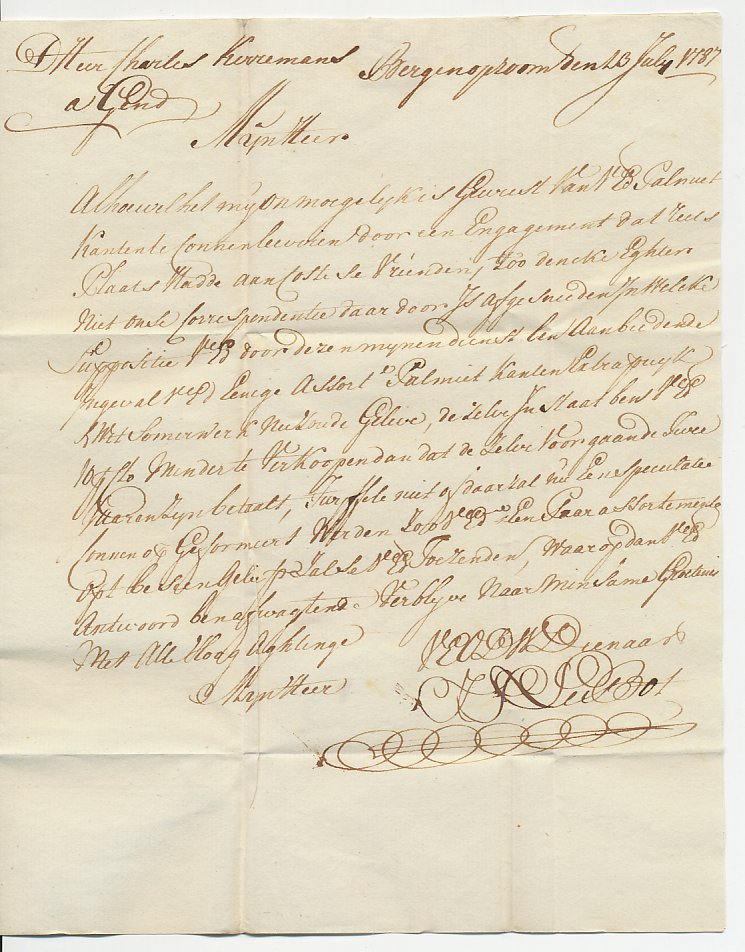 D Heer Charles Kerremans Bergenopzoom den 23 July 1787
a Gend
Mijn Heer
Alhoewel het mij onmoegelijk is Geweest Van VEd Palmiet
Kanten te Connen leeveren door een Engagement dat reets
Plaats Hadde aan Coste se Vrienden, Zoo dencke Eghter
Niet onse Correspondentie daar door Is afgesneeden In Welcke
Suppositie VEd door dezen mynen dienst ben Aanbiedende
Ingeval VEd Eenige Assort Palmiet Kanten Extra puyk
Somerwerk Gelive, de zelve In staat ben VEd
10 pCto Minder te Verkoopen dan dat de Zelve Voorgaande Twee
Jaaren Zyn betaalt, Twyffele niet of daar zal nu Een speculatie
Connen op Geformeert Werden Zoo VEd Een Paar assortimente
Opt be sien Gelieft Zal se VEd Toezenden, Waar op dan VEd
Antwoord ben afwagtende Verblyve Naar Minsame Groetenis
Met Alle Hoog Aghtinge
Mijn Heer
VEd DW Dienaar